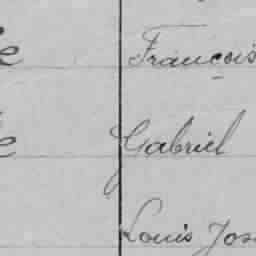 François
Gabriel
Louis Jos